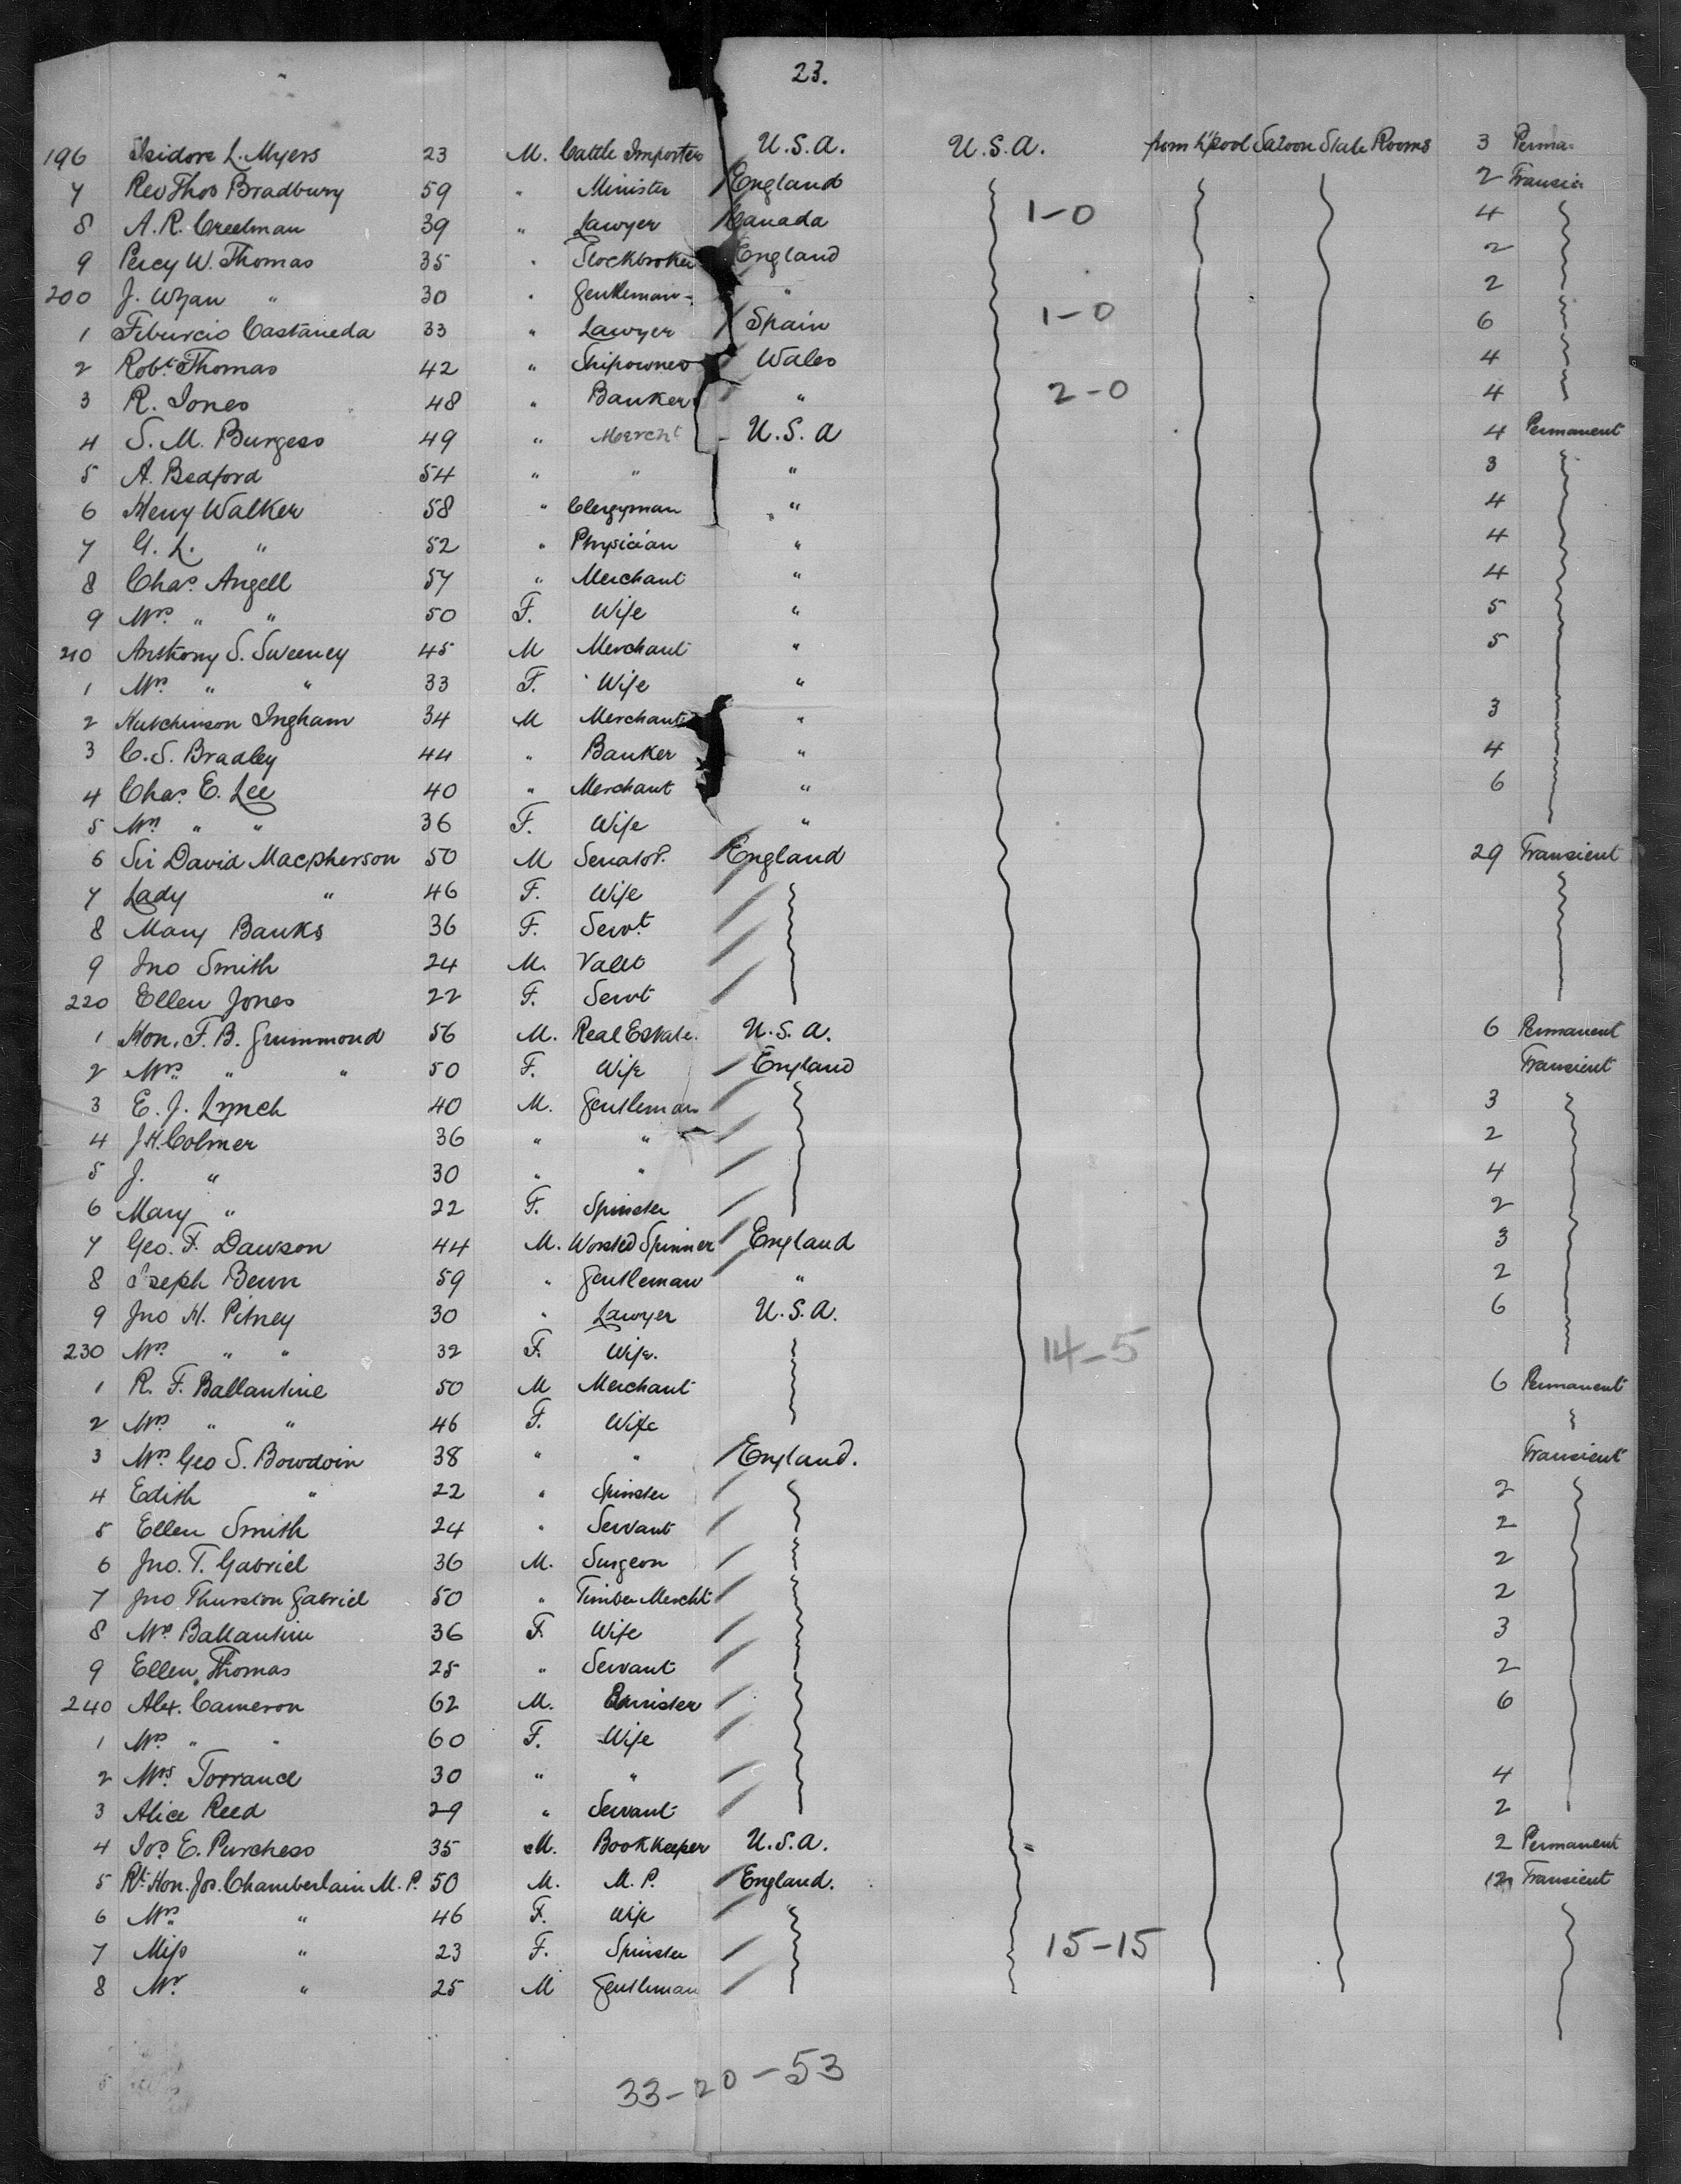 23.
196 Isidore L. Myers 23 M. Cattle Importer U.S.A. U.S.A. from L'pool Saloon State Rooms 3 Perma
7 Rev Thos Bradbury 59 " Minister England 2 Transie
8 A. R. Creelman 39 " Lawyer Canada 1-0 4
9 Percy W. Thomas 35 " Stockbroker England 2
200 J. Wyan " 30 " Gentleman " 2
1 Tiburcio Castaneda 33 " Lawyer Spain 1-0 6
2 Robt. Thomas 42 " Shipowner Wales 4
3 R. Jones 48 " Banker " 2-0 4
4 S. M. Burgess 49 " Mercht U.S.A 4 Permanent
5 A. Bedford 54 " " " 3
6 Henry Walker 58 " Clergyman " 4
7 G. L. " 52 " Physician " 4
8 Chas. Angell 57 " Merchant " 4
9 Mrs. " " 50 F. Wife " 5
210 Anthony S. Sweeney 45 M Merchant " 5
1 Mrs. " " 33 F. Wife "
2 Hutchinson Ingham 34 M Merchant " 3
3 C. S. Bradley 44 " Banker " 4
4 Chas. E. Lee 40 " Merchant " 6
5 Mrs. " " 36 F. Wife "
6 Sir David Macpherson 50 M Senator. England 29 Transient
7 Lady " 46 F. Wife
8 Mary Banks 36 F. Servt.
9 Jno Smith 24 M. Valet
220 Ellen Jones 22 F. Servt
1 Hon. F. B. Grummond 56 M. Real Estate. U.S.A. 6 Permanent
2 Mrs. " " 50 F. Wife England Transient
3 E. J. Lynch 40 M. Gentleman 3
4 J H. Colmer 36 " " 2
5 J. " 30 " " 4
6 Mary " 22 F. Spinster 2
7 Geo. F. Dawson 44 M. Worsted Spinner England 3
8 Joseph Benn 59 " Gentleman " 2
9 Jno H. Pitney 30 " Lawyer U.S.A. 6
230 Mrs. " " 32 F. Wife. 14-5
1 R. F. Ballantine 50 M Merchant 6 Permanent
2 Mrs. " " 46 F. Wife
3 Mrs. Geo S. Bowdoin 38 " " England. Transient
4 Edith " 22 " Spinster 2
5 Ellen Smith 24 " Servant 2
6 Jno. T. Gabriel 36 M. Surgeon 2
7 Jno Thurston Gabriel 50 " Timber Mercht 2
8 Mrs Ballantine 36 F. Wife 3
9 Ellen Thomas 25 " Servant 2
240 Alex. Cameron 62 M. Barrister 6
1 Mrs. " " 60 F. Wife
2 Mrs. Torrance 30 " " 4
3 Alice Reed 29 " Servant 2
4 Jos. E. Purchess 35 M. Bookkeeper U.S.A. 2 Permanent
5 Rt. Hon. Jos. Chamberlain M. P. 50 M. M. P. England. 12 Transient
6 Mrs. " 46 F. Wife
7 Miss " 23 F. Spinster 15-15
8 Mr. " 25 M Gentleman
33-20-53